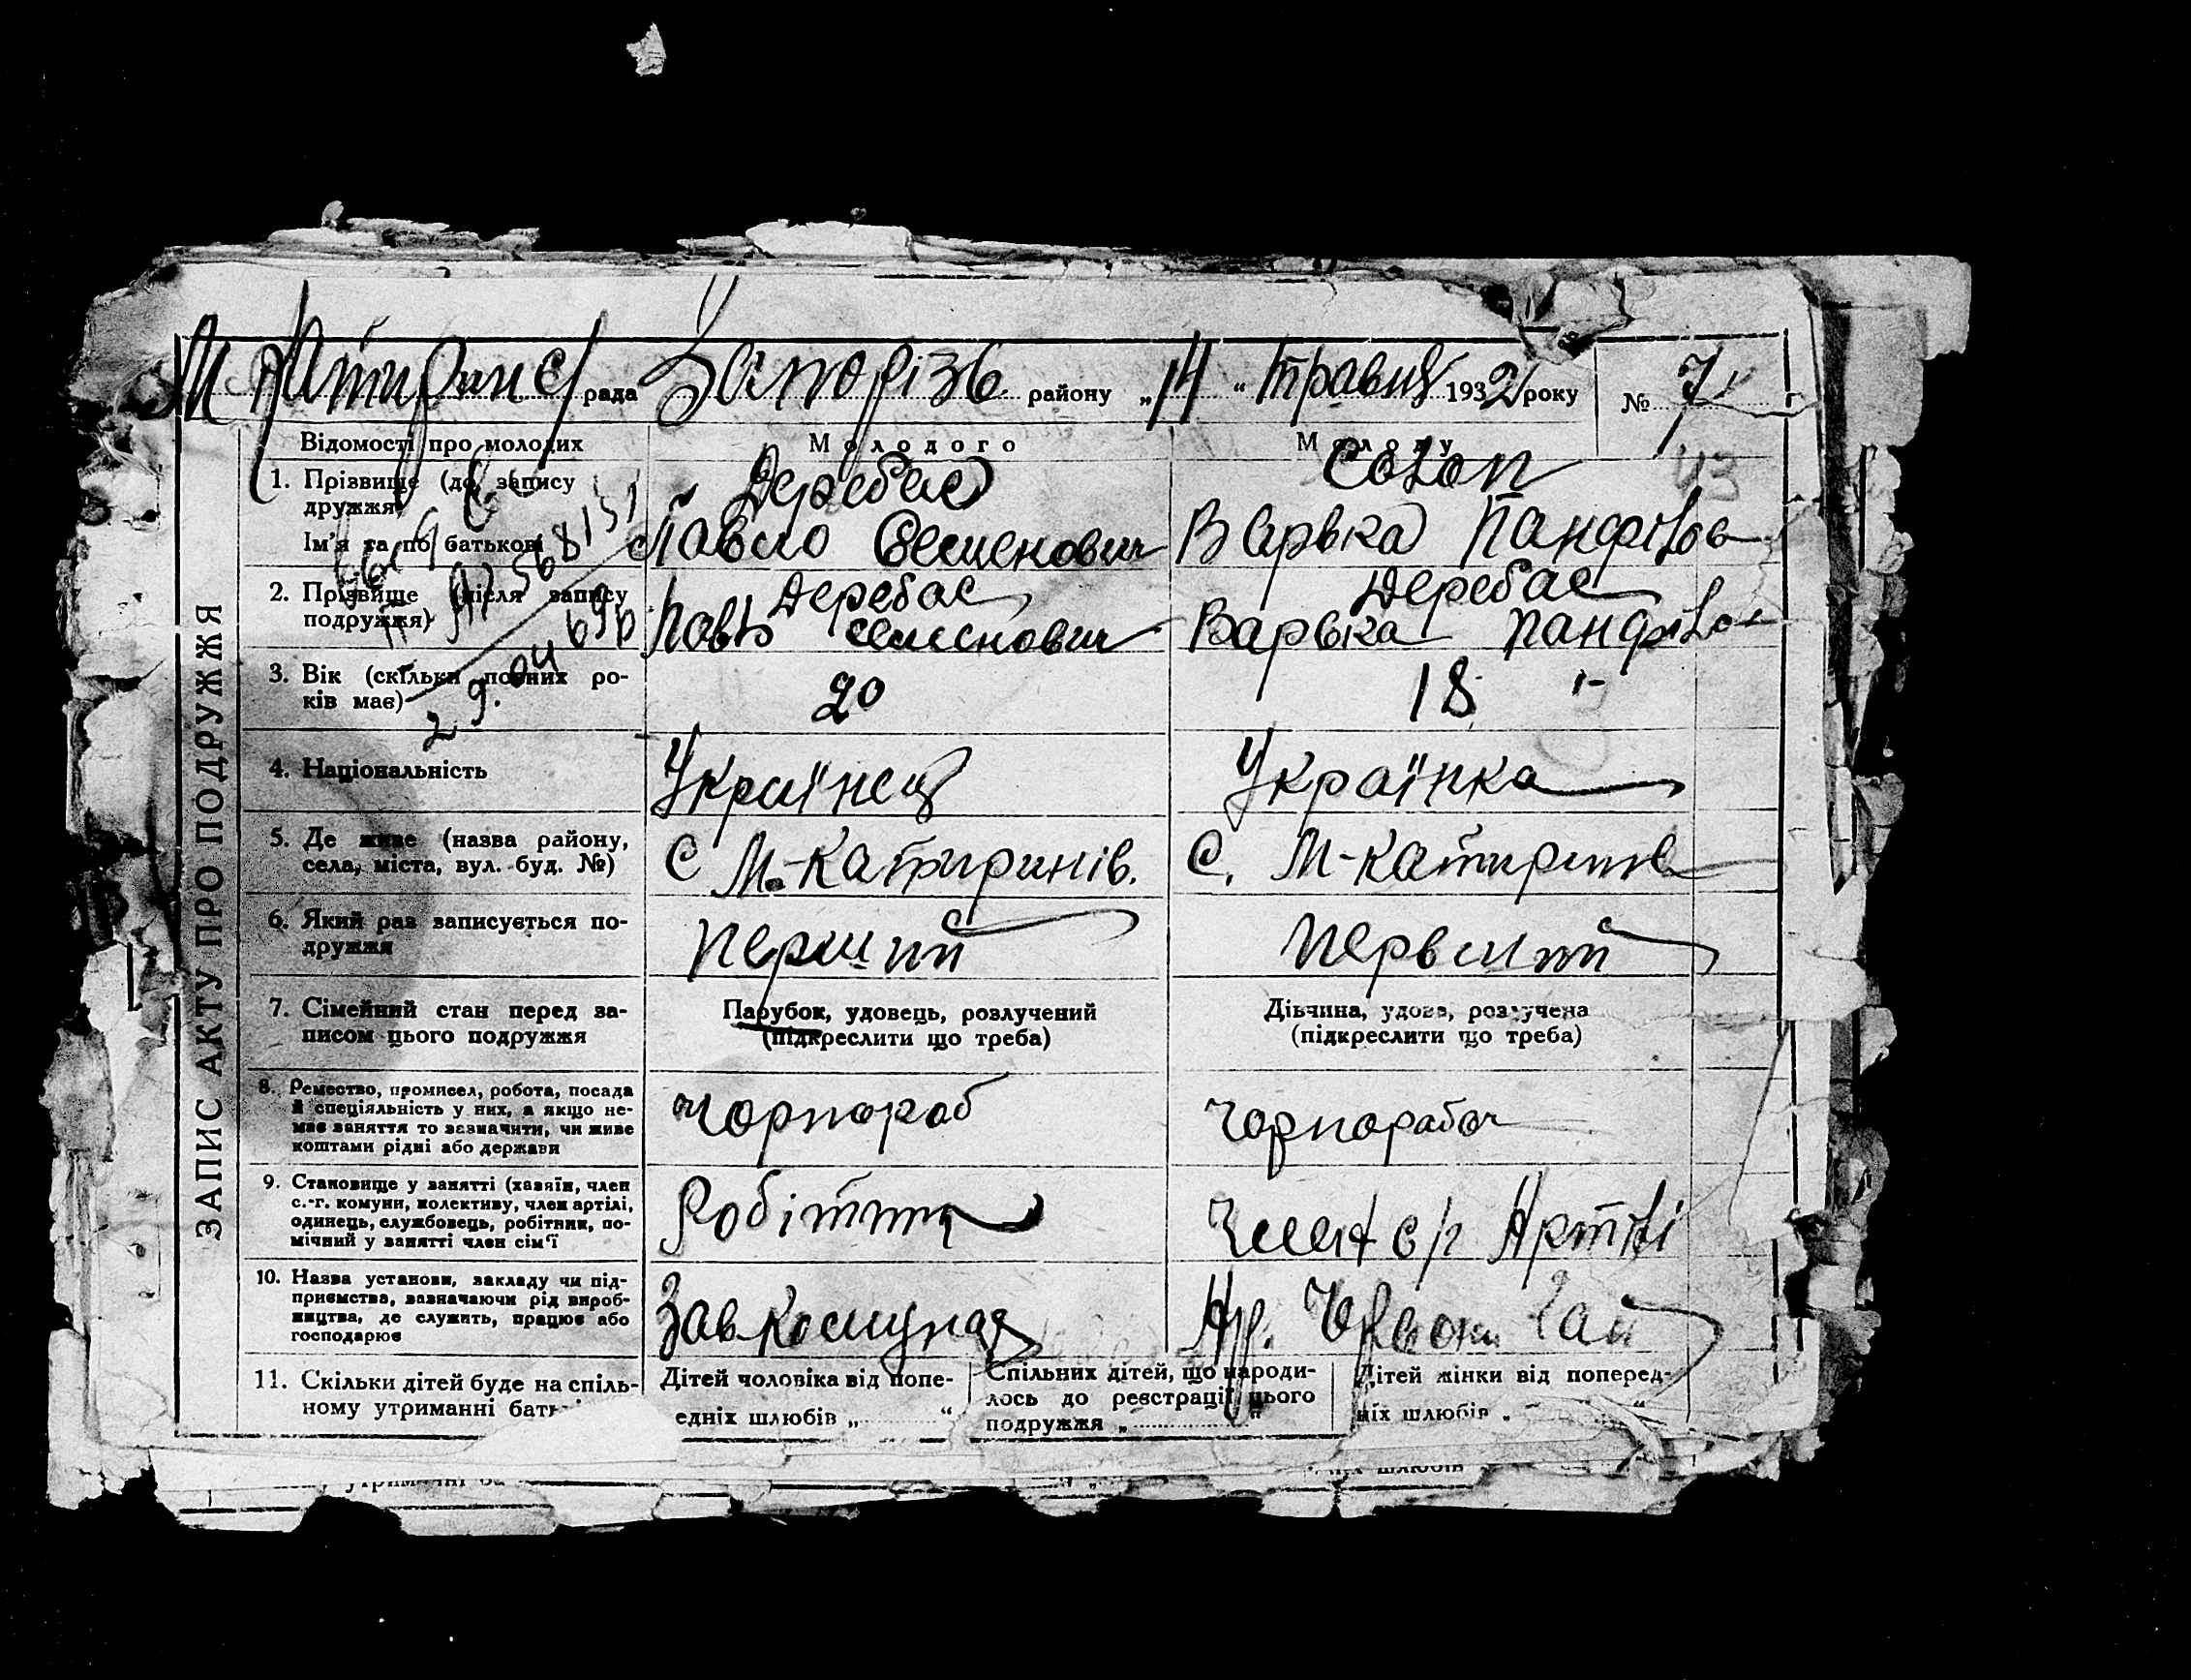 М Катирин с/рада Запорізь району „14“ травня 1932 року № 7
Відомості про молодих
Молодого
Молоду
43
1. Прізвище (до запису
дружжя)
Ім'я та по батькові
Деребас
Павло Семенович
Солоп
Варвка Панфілов
2. Прізвище (після запису
подружжя)
Деребас
Павло Семенович
Деребас
Варвка Панфілов
3. Вік (скільки повних ро-
ків має)
20
18
4. Національність
Українець
Українка
5. Де живе (назва району,
села, міста, вул. буд. №)
С М-Катиринів.
С. М-Катиринів
6. Який раз записується по-
дружжя
перший
первший
7. Сімейний стан перед за-
писом цього подружжя
Парубок, удовець, розлучений
(підкреслити що треба)
Дівчина, удова, розлучена
(підкреслити що треба)
8. Ремество, промисел, робота, посада
й спеціяльність у них, а якщо не-
має заняття то зазначити, чи живе
коштами рідні або держави
Чорнороб
Чорнорабоч
9. Становище у занятті (хазяїн, член
с.-г. комуни, колективу, член артілі,
одинець, службовець, робітник, по-
мічний у занятті член сім'ї
Робітник
Член с/г Артілі
10. Назва установи, закладу чи під-
приємства, зазначаючи рід вироб-
ництва, де служить, працює або
господарює
Зав Комунар
Ар. Червони Гай
11. Скільки дітей буде на спіль-
ному утриманні
Дітей чоловіка від попе-
едніх шлюбів „ “
Спільних дітей, що народи-
лось до реєстрації цього
подружжя „ “
Дітей жінки від поперед-
ніх шлюбів „ “
ЗАПИС АКТУ ПРО ПОДРУЖЖЯ